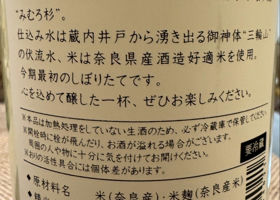 “みむろ杉”。
仕込み水は蔵内井戸から湧き出る御神体“三輪山”
の伏流水、米は奈良県産酒造好適米を使用。
今期最初のしぼりたてです。
心を込めて醸した一杯、ぜひお楽しみください。
※本品は加熱処理をしていない生酒のため、必ず冷蔵庫で保管してください
※開栓時に栓が飛んだり、お酒が溢れる場合がございます。
周囲の人や物に十分に気を付けてお開けください。
※おりの活性具合には個体差があります。
要冷蔵
原材料名 米(奈良産)・米麹(奈良産米)